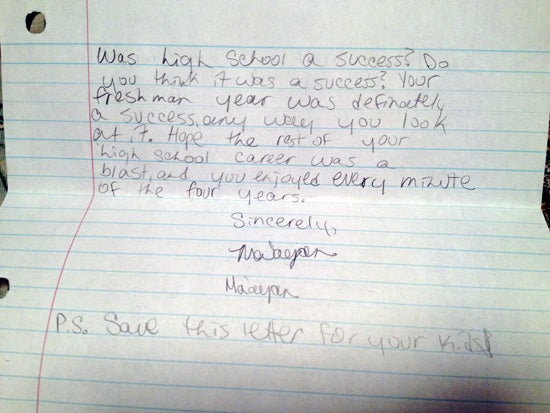 Was high school a success? Do
you think it was a success? Your
freshman year was definately
a success, any way you look
at it. Hope the rest of your
high school career was a
blast, and you enjoyed every minute
of the four years.
Sincerely,
Ma'ayan
P.S. Save this letter for your kids!